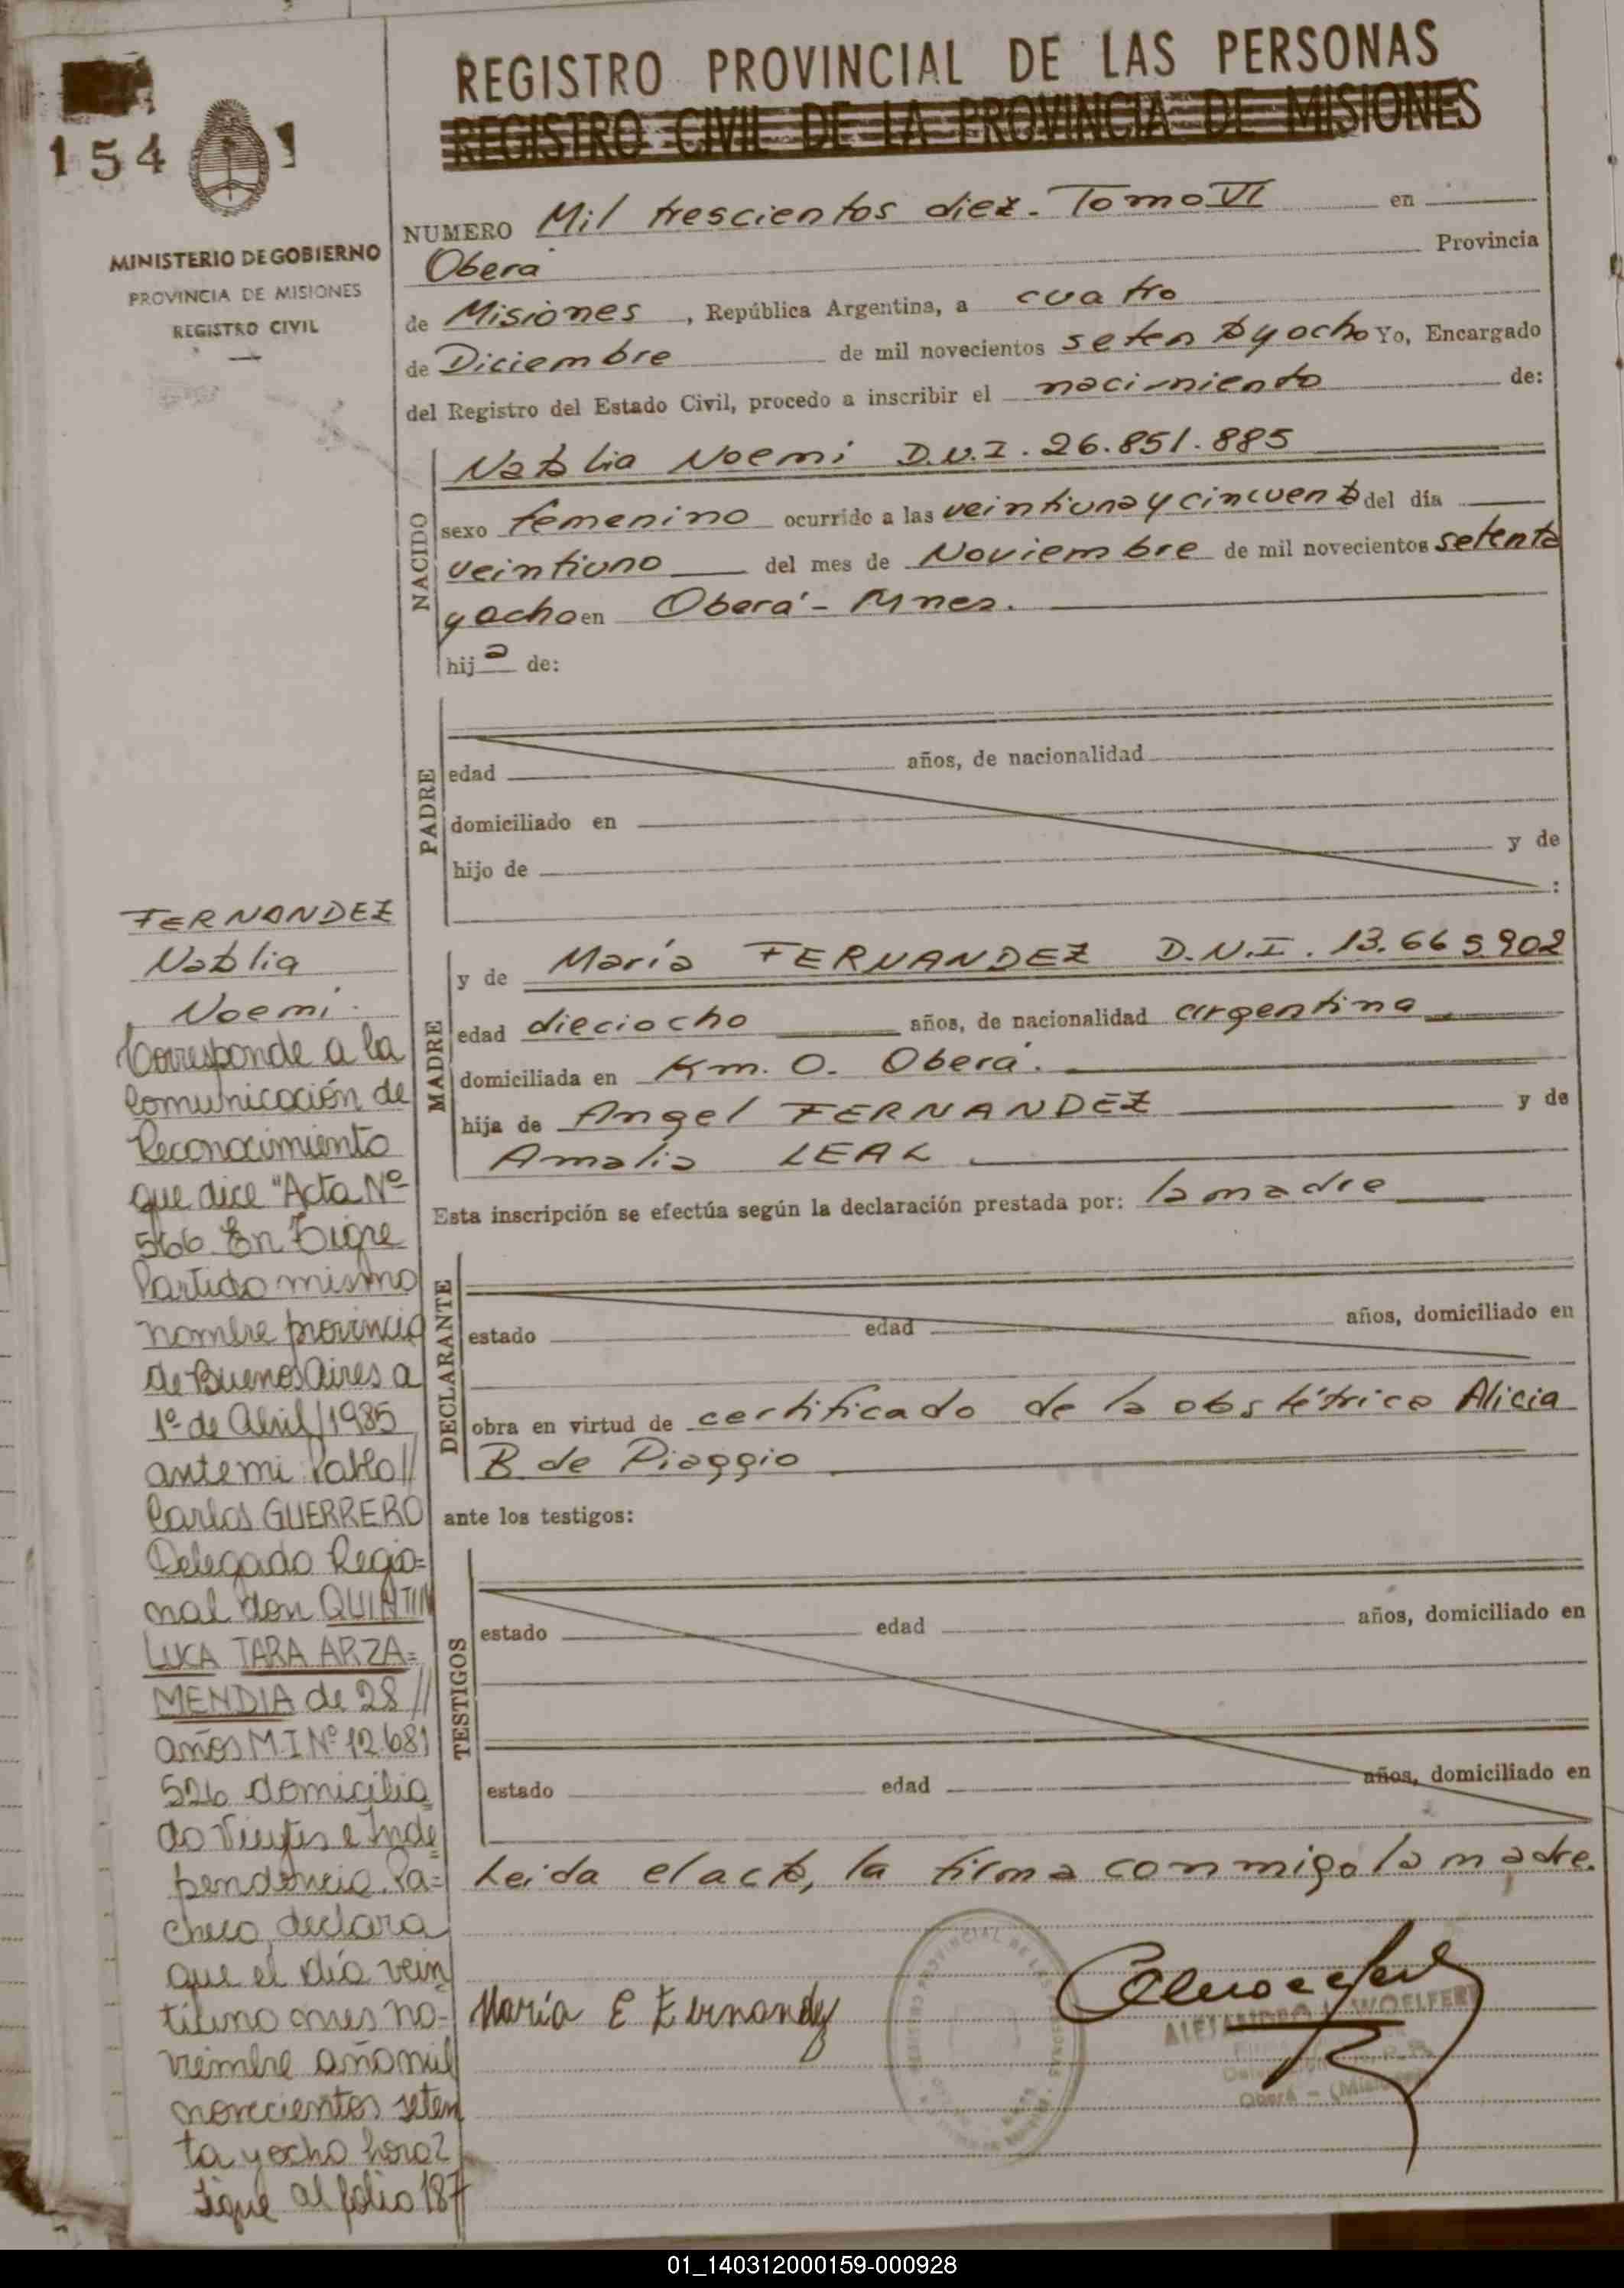 REGISTRO PROVINCIAL DE LAS PERSONAS
REGISTRO CIVIL DE LA PROVINCIA DE MISIONES
154
MINISTERIO DE GOBIERNO
PROVINCIA DE MISIONES
REGISTRO CIVIL
NUMERO Mil trescientos diez. Tomo VI en
Obera Provincia
de Misiones, República Argentina, a cuatro
de Diciembre de mil novecientos setenta y ocho Yo, Encargado
del Registro del Estado Civil, procedo a inscribir el nacimiento de:
NACIDO
Natalia Noemi D.N.I. 26.851.885
sexo femenino ocurrido a las veintiuna y cincuenta del día
veintiuno del mes de Noviembre de mil novecientos setenta
y ocho en Oberá - Mnes.
hija de:
PADRE
edad años, de nacionalidad
domiciliado en
hijo de y de
:
MADRE
y de María FERNANDEZ D.N.I. 13.665.902
edad dieciocho años, de nacionalidad argentina
domiciliada en Km. 0. Oberá.
hija de Angel FERNANDEZ y de
Amalia LEAL
Esta inscripción se efectúa según la declaración prestada por: la madre
DECLARANTE
estado edad años, domiciliado en
obra en virtud de certificado de la obstétrica Alicia
B. de Piaggio
ante los testigos:
TESTIGOS
estado edad años, domiciliado en
estado edad años, domiciliado en
Leida el acta, la firma conmigo la madre.
María E Fernandez
ALEJANDRO WOELFERT
Oberá - (Misiones)
FERNANDEZ
Natalia
Noemi.
Corresponde a la
Comunicación de
Reconocimiento
que dice "Acta Nº
566 En Tigre
Partido mismo
nombre provincia
de Buenos Aires a
1º de Abril/1985
ante mi Pablo//
Carlos GUERRERO
Delegado Regio=
nal don QUINTIN
LUCA TARA ARZA=
MENDIA de 28//
años M I Nº 12681
526 domicilia
do Vieytes e Inde
pendencia. Pa=
checo, declara
que el día vein
tiuno mes no-
viembre año mil
novecientos seten
ta y ocho hora 2
Sigue al folio 187
01_140312000159-000928